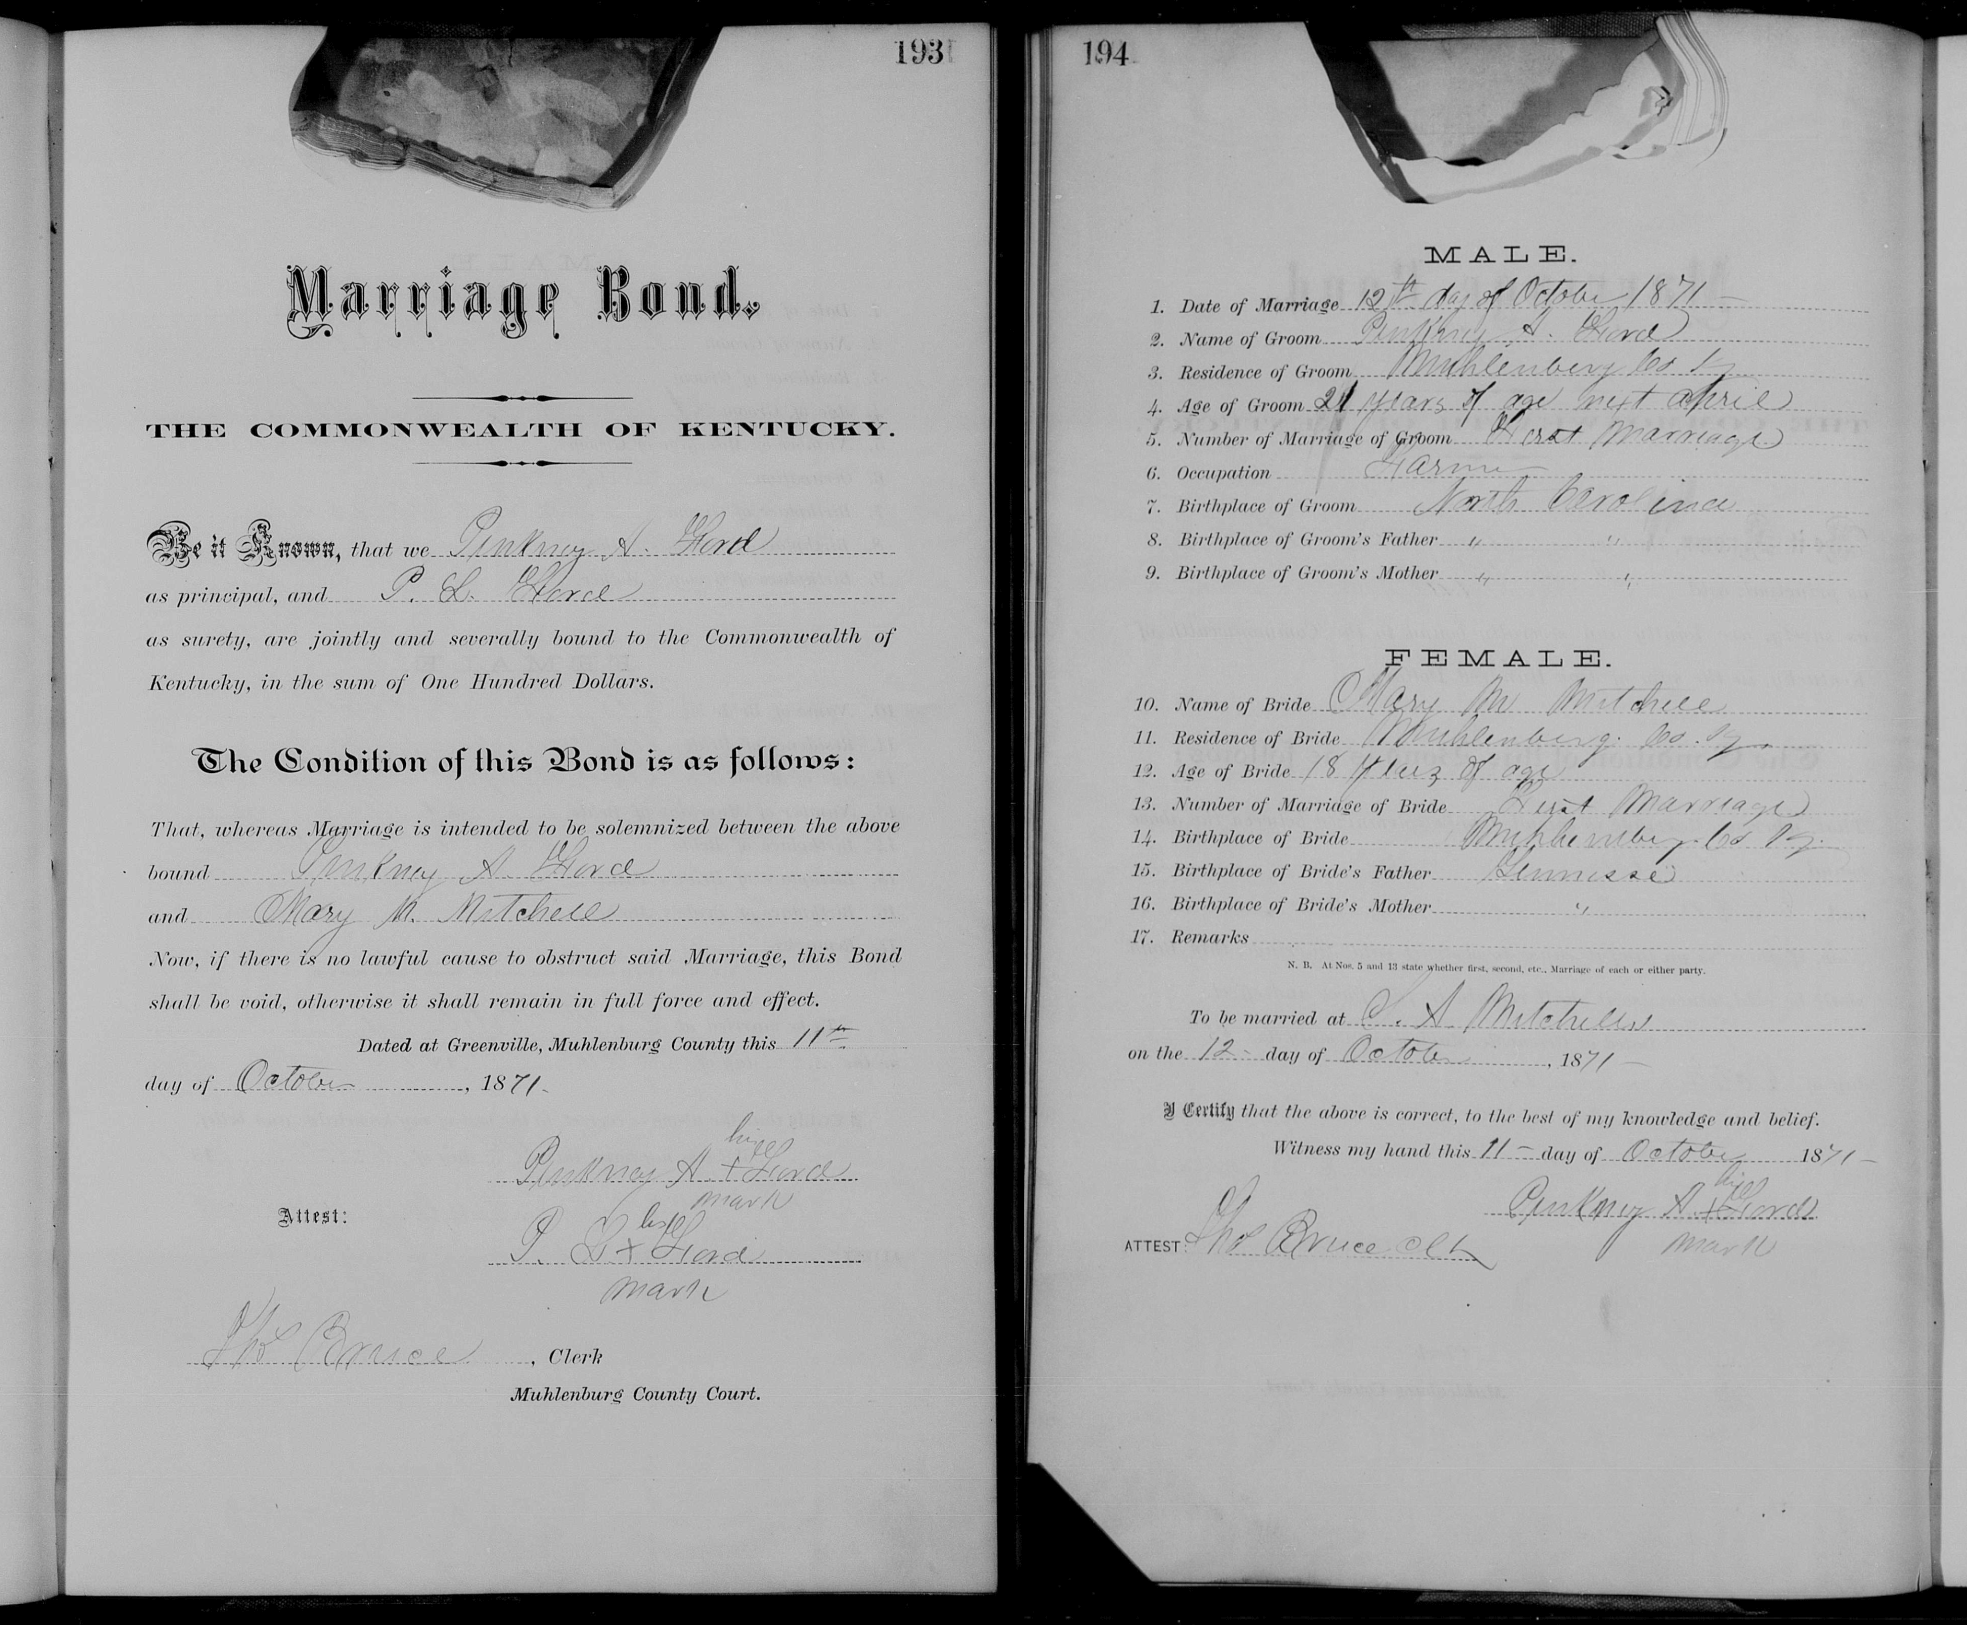 193
Marriage Bond.
THE COMMONWEALTH OF KENTUCKY.
Be it Known, that we Pinkney A. Ford
as principal, and P. L. Ford
as surety, are jointly and severally bound to the Commonwealth of
Kentucky, in the sum of One Hundred Dollars.
The Condition of this Bond is as follows:
That, whereas Marriage is intended to be solemnized between the above
bound Pinkney A. Ford
and Mary M. Mitchell
Now, if there is no lawful cause to obstruct said Marriage, this Bond
shall be void, otherwise it shall remain in full force and effect.
Dated at Greenville, Muhlenburg County this 11th
day of October, 1871.
his
Pinkney A. + Ford
mark
Attest:
his
P. L + Ford
mark
Thos Bruce, Clerk
Muhlenburg County Court.
194
MALE.
1. Date of Marriage 12th day of October 1871 -
2. Name of Groom Pinkney A. Ford
3. Residence of Groom Muhlenberg Co Ky
4. Age of Groom 21 years of age next April
5. Number of Marriage of Groom First Marriage
6. Occupation Farmer
7. Birthplace of Groom North Carolina
8. Birthplace of Groom's Father " "
9. Birthplace of Groom's Mother " "
FEMALE.
10. Name of Bride Mary M Mitchell
11. Residence of Bride Muhlenberg. Co. Ky.
12. Age of Bride 18 years of age
13. Number of Marriage of Bride First Marriage
14. Birthplace of Bride Muhlenberg Co Ky.
15. Birthplace of Bride's Father Tennessee
16. Birthplace of Bride's Mother "
17. Remarks
N. B. At Nos. 5 and 13 state whether first, second, etc., Marriage of each or either party.
To be married at A Mitchells
on the 12 - day of October, 1871 -
I Certify that the above is correct, to the best of my knowledge and belief.
Witness my hand this 11 - day of October 1871 -
his
Pinkney A. + Ford
mark
ATTEST: Thos Bruce Clk